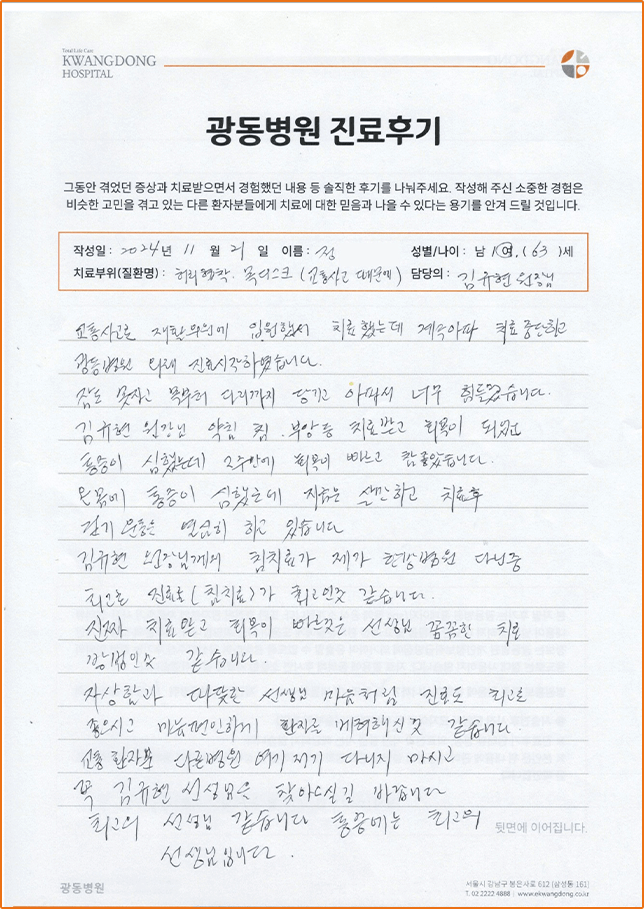 Total Life Care
KWANGDONG
HOSPITAL
광동병원 진료후기
그동안 겪었던 증상과 치료받으면서 경험했던 내용 등 솔직한 후기를 나눠주세요. 작성해 주신 소중한 경험은
비슷한 고민을 겪고 있는 다른 환자분들에게 치료에 대한 믿음과 나을 수 있다는 용기를 안겨 드릴 것입니다.
작성일 : 2024년 11 월 21 일 이름 : 정 성별/나이 : 남 / 여, ( 63 )세
치료부위(질환명) : 허리협착. 목디스크 (교통사고 때문에) 담당의 : 김규현 원장님
교통사고로 재활의원에 입원했서 치료했는데 계속아파 치료중단하고
광동병원 외래 진료시작하였습니다.
잠도 못자고 목부터 다리까지 당기고 아파서 너무 힘들었습니다.
김규현 원장님 약침 침. 부항등 치료받고 회복이 되었고
통증이 심했는데 2주만에 회복이 빠르고 참좋았습니다.
온몸에 통증이 심했는데 지금은 생활하고 치료후
걷기 운동은 열심히 하고 있습니다
김규현 원장님에게 침치료가 제가 한방병원 다닌중
최고로 진료로(침치료)가 최고인것 같습니다.
진짜 치료받고 회복이 빠른것은 선생님 꼼꼼한 치료
같습니다.
자상함과 따뜻한 선생님 마음처럼 진료도 최고로
좋으시고 마음편안하게 환자로 배려해주신것 같습니다.
교통환자분 다른병원 여기저기 다니지 마시고
꼭 김규현 선생님을 찾아오실길 바랍니다
최고의 선생님 같습니다 통증에는 최고의
선생님입니다.
뒷면에 이어집니다.
광동병원
서울시 강남구 봉은사로 612 (삼성동 161)
T. 02 2222 4888 | www.ekwangdong.co.kr